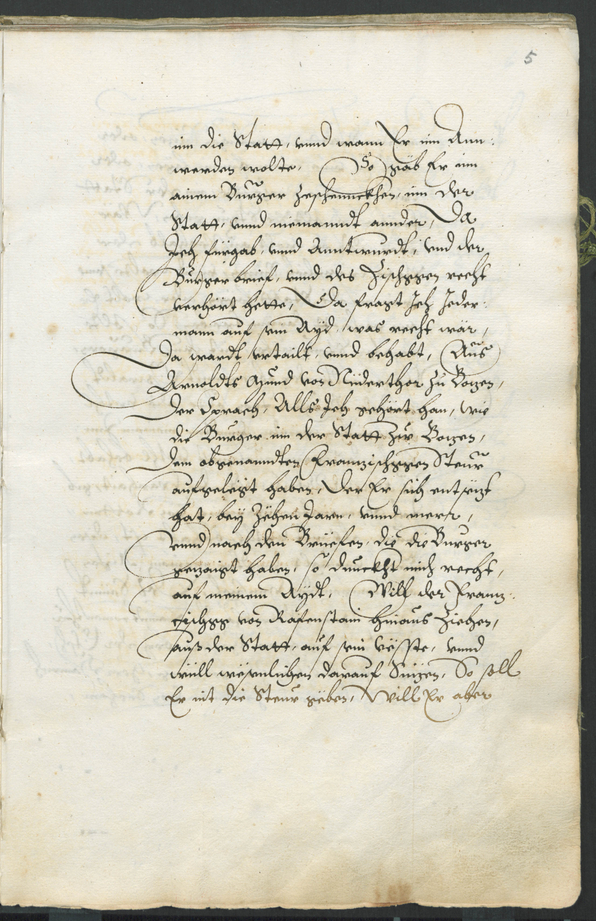 5
inn die Statt, vnnd wann Er inn Ann:
werden wolte, So gäb Er inn
ainem Burger zeschennckhen, inn der
Statt, vnnd niemanndt annder, Da
Ich fürgab, vnnd Anntwurdt, vnd der
Burger brief, vnnd des Zischggen recht
verhört hette, Da fragt Ich Jeder:
mann auf sein Ayd, was recht wär,
Da wardt ertailt, vnnd behabt, Aus
Arnoldts Mund von Niderthor zu Bozen,
Der Sprach, Alls Ich gehört han, wie
die Burger inn der Statt zu Bozen,
dem obgenannten Franzischggen Steur
aufgelegt haben, Der Er sich entsezt
hat, bey Zehen Jarn, vnnd merr,
vnnd nach den Brüefen, die die Burger
gezaigt haben, so dunckht mich recht,
auf meinem Aydt, Will der Franz:
zischgg von Rafenstain hinaus ziehen,
auß der Statt, auf sein vesste, vnnd
will wesenlichen darauf Sizen, So soll
Er nit die Steur geben, Will Er aber